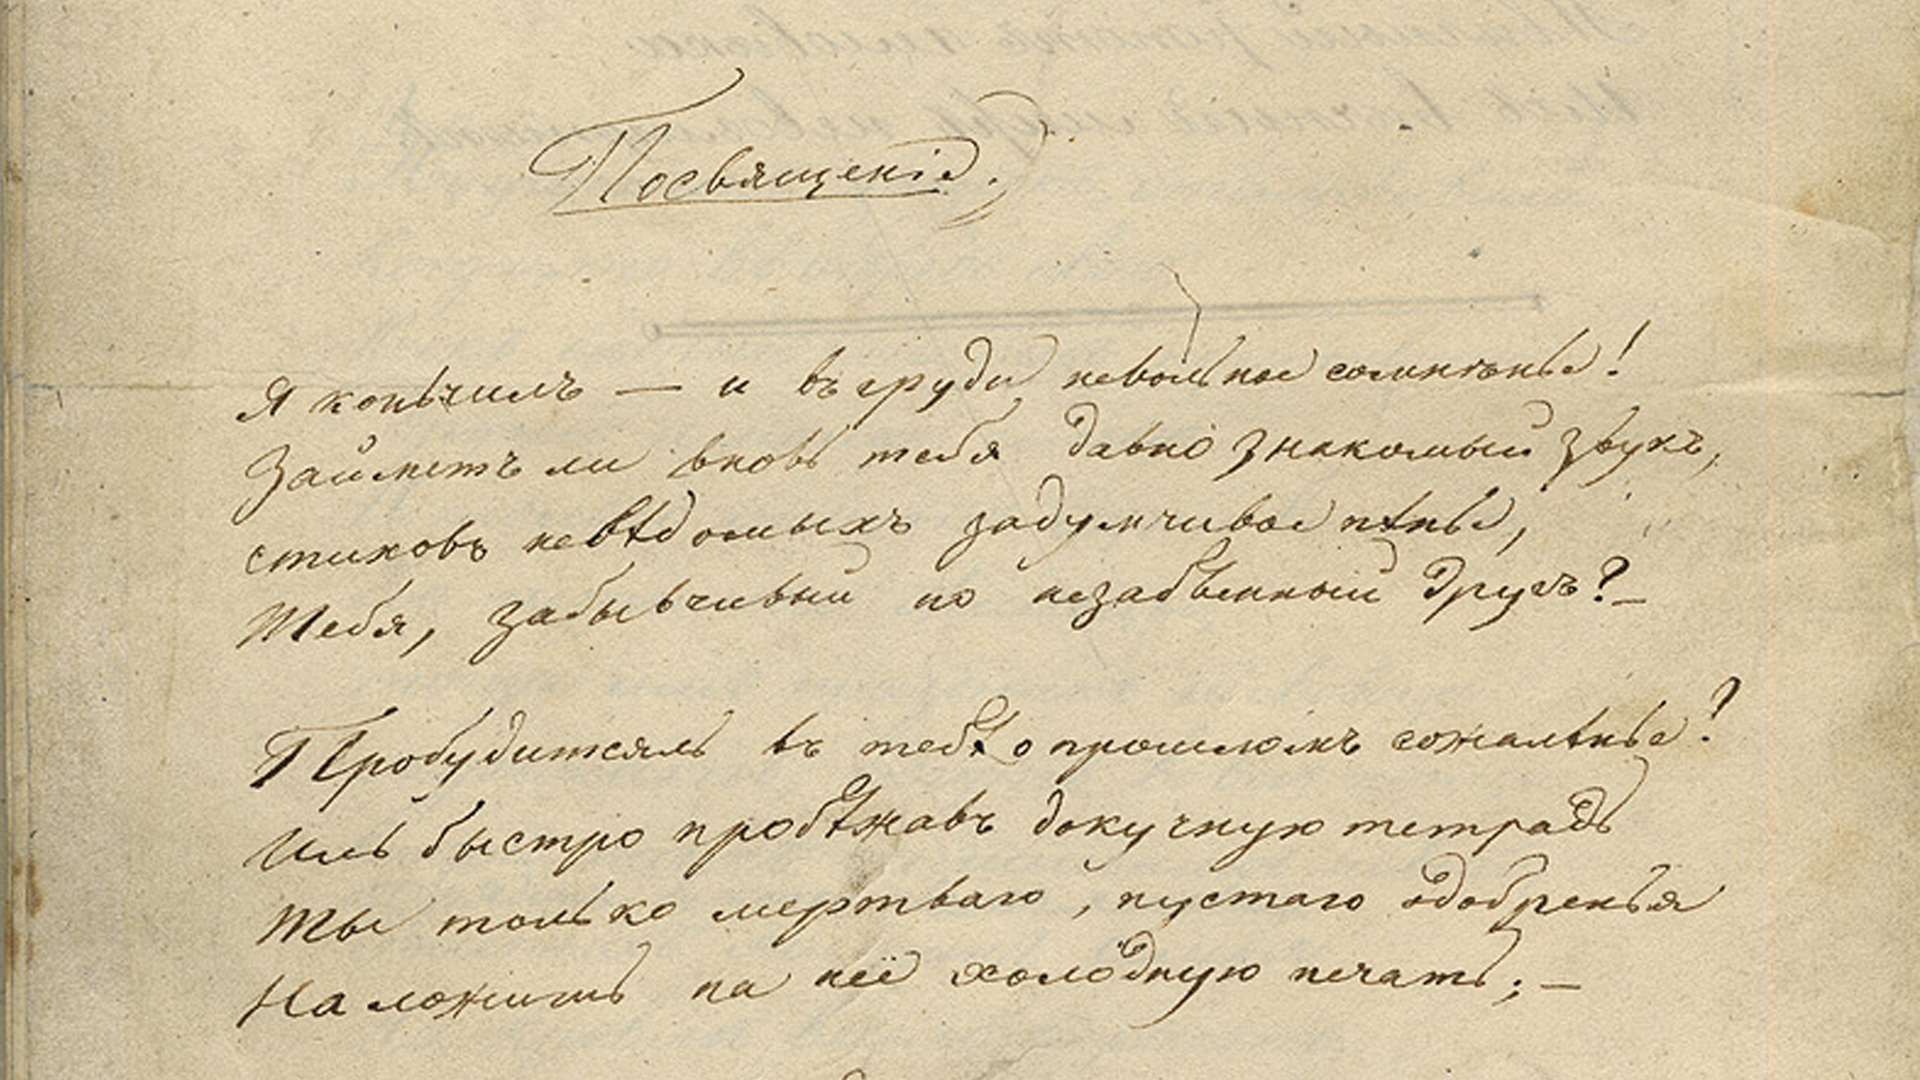 Посвященіе.
Я коньчилъ — и въ груди невольное сомнѣнье!
Займетъ ли вновь тебя давно знакомый звукъ,
стиховъ невѣдомыхъ задумчивое пѣнье,
Тебя, забывчивый но незабвенный другъ? —
Пробудится ль въ тебѣ о прошломъ сожалѣнье?
Иль быстро пробѣжавъ докучную тетрадь
Ты только мертваго, пустаго одобренья
Наложишь на неё холодную печать; —